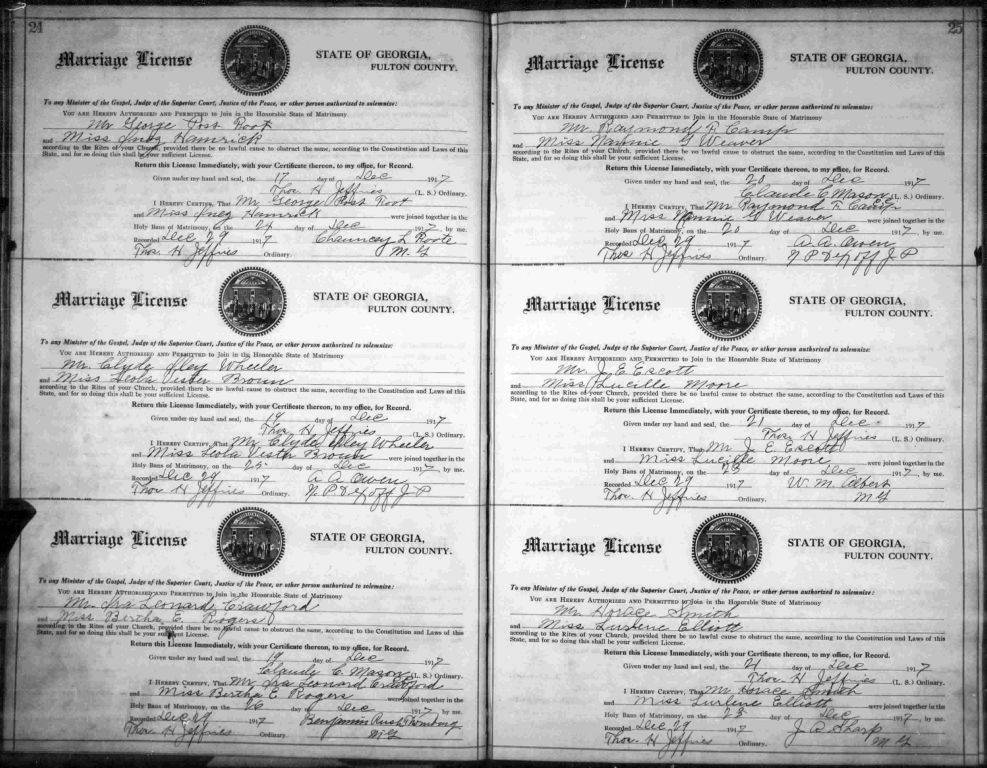 24
Marriage License
STATE OF GEORGIA,
FULTON COUNTY.
To any Minister of the Gospel, Judge of the Superior Court, Justice of the Peace, or other person authorized to solemnize:
YOU ARE HEREBY AUTHORIZED AND PERMITTED to Join in the Honorable State of Matrimony
Mr George Post Root
and Miss Inez Hamrick
according to the Rites of your Church, provided there be no lawful cause to obstruct the same, according to the Constitution and Laws of this
State, and for so doing this shall be your sufficient License.
Return this License Immediately, with your Certificate thereon, to my office, for Record.
Given under my hand and seal, the 17 day of Dec 1917
Thos H Jeffries (L. S.) Ordinary.
I HEREBY CERTIFY, That Mr George Post Root
and Miss Inez Hamrick were joined together in the
Holy Bans of Matrimony, on the 24 day of Dec 1917, by me.
Recorded Dec 29 1917 Chauncey L Foote
Thos. H Jeffries Ordinary. M. G
Marriage License
STATE OF GEORGIA,
FULTON COUNTY.
To any Minister of the Gospel, Judge of the Superior Court, Justice of the Peace, or other person authorized to solemnize:
YOU ARE HEREBY AUTHORIZED AND PERMITTED to Join in the Honorable State of Matrimony
Mr. Clyde Wheeler
and Miss Leola Vester Brown
according to the Rites of your Church, provided there be no lawful cause to obstruct the same, according to the Constitution and Laws of this
State, and for so doing this shall be your sufficient License.
Return this License Immediately, with your Certificate thereon, to my office, for Record.
Given under my hand and seal, the 19 day of Dec 1917
Thos. H Jeffries (L. S.) Ordinary.
I HEREBY CERTIFY, That Mr Clyde Wheeler
and Miss Leola Vester Brown were joined together in the
Holy Bans of Matrimony, on the 25 day of Dec 1917, by me.
Recorded Dec 29 1917 A A Owen
Thos H Jeffries Ordinary. N P & Ex off J P
Marriage License
STATE OF GEORGIA,
FULTON COUNTY.
To any Minister of the Gospel, Judge of the Superior Court, Justice of the Peace, or other person authorized to solemnize:
YOU ARE HEREBY AUTHORIZED AND PERMITTED to Join in the Honorable State of Matrimony
Mr. Ira Leonard Crawford
and Miss Bertha E Rogers
according to the Rites of your Church, provided there be no lawful cause to obstruct the same, according to the Constitution and Laws of this
State, and for so doing this shall be your sufficient License.
Return this License Immediately, with your Certificate thereon, to my office, for Record.
Given under my hand and seal, the 19 day of Dec 1917
Claude C Mason (L. S.) Ordinary.
I HEREBY CERTIFY, That Mr Ira Leonard Crawford
and Miss Bertha E Rogers were joined together in the
Holy Bans of Matrimony, on the 26 day of Dec 1917, by me.
Recorded Dec 29 1917 Benjamin
Thos H Jeffries Ordinary. M G
25
Marriage License
STATE OF GEORGIA,
FULTON COUNTY.
To any Minister of the Gospel, Judge of the Superior Court, Justice of the Peace, or other person authorized to solemnize:
YOU ARE HEREBY AUTHORIZED AND PERMITTED to Join in the Honorable State of Matrimony
Mr. Raymond F Camp
and Miss Nannie G Weaver
according to the Rites of your Church, provided there be no lawful cause to obstruct the same, according to the Constitution and Laws of this
State, and for so doing this shall be your sufficient License.
Return this License Immediately, with your Certificate thereon, to my office, for Record.
Given under my hand and seal, the 20 day of Dec 1917
Claude C Mason (L. S.) Ordinary.
I HEREBY CERTIFY, That Mr Raymond F Camp
and Miss Nannie G Weaver were joined together in the
Holy Bans of Matrimony, on the 20 day of Dec 1917, by me.
Recorded Dec 29 1917 A. A. Owen
Thos H Jeffries Ordinary. N P & Ex off J P
Marriage License
STATE OF GEORGIA,
FULTON COUNTY.
To any Minister of the Gospel, Judge of the Superior Court, Justice of the Peace, or other person authorized to solemnize:
YOU ARE HEREBY AUTHORIZED AND PERMITTED to Join in the Honorable State of Matrimony
Mr. J E Escott
and Miss Lucille Moore
according to the Rites of your Church, provided there be no lawful cause to obstruct the same, according to the Constitution and Laws of this
State, and for so doing this shall be your sufficient License.
Return this License Immediately, with your Certificate thereon, to my office, for Record.
Given under my hand and seal, the 21 day of Dec 1917
Thos H Jeffries (L. S.) Ordinary.
I HEREBY CERTIFY, That Mr J. E Escott
and Miss Lucille Moore were joined together in the
Holy Bans of Matrimony, on the 23 day of Dec 1917, by me.
Recorded Dec 29 1917 W. M. Albert
Thos. H Jeffries Ordinary. M G
Marriage License
STATE OF GEORGIA,
FULTON COUNTY.
To any Minister of the Gospel, Judge of the Superior Court, Justice of the Peace, or other person authorized to solemnize:
YOU ARE HEREBY AUTHORIZED AND PERMITTED to Join in the Honorable State of Matrimony
Mr Horace Smith
and Miss Lurlene Elliott
according to the Rites of your Church, provided there be no lawful cause to obstruct the same, according to the Constitution and Laws of this
State, and for so doing this shall be your sufficient License.
Return this License Immediately, with your Certificate thereon, to my office, for Record.
Given under my hand and seal, the 21 day of Dec 1917
Thos H Jeffries (L. S.) Ordinary.
I HEREBY CERTIFY, That Mr Horace Smith
and Miss Lurlene Elliott were joined together in the
Holy Bans of Matrimony, on the 23 day of Dec 1917, by me.
Recorded Dec 29 1917 J. B Sharp
Thos. H Jeffries Ordinary. M G